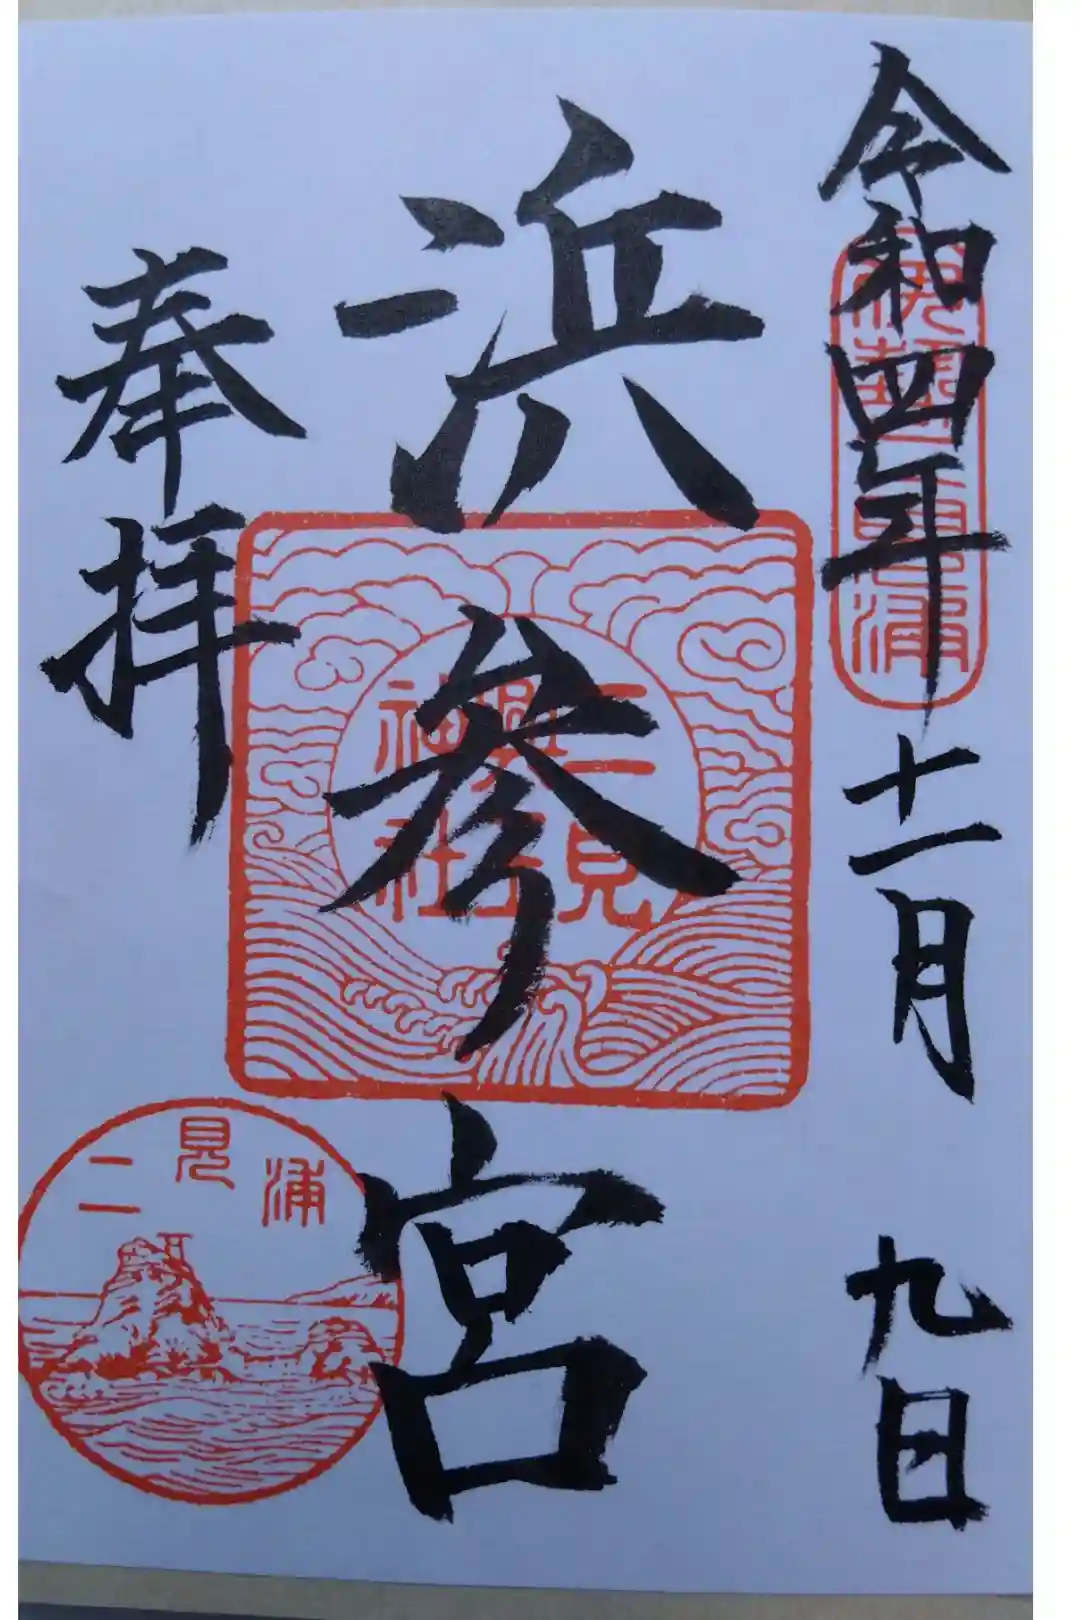 令和四年十一月九日
伊勢二見浦
浜参宮
二見興玉神社
奉拝
二見浦